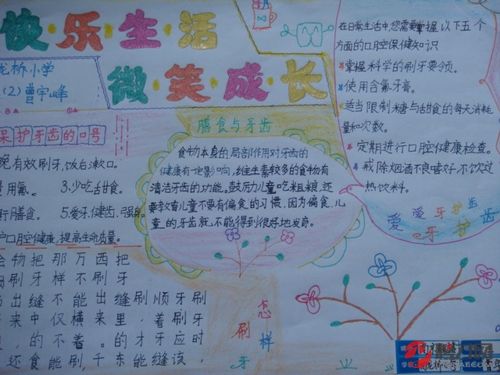 快乐生活
微笑成长
龙桥小学
(2)曾宇峰
保护牙齿的口号
有效刷牙,饭后漱口。
用氟。 3.少吃甜食。
膳食。 5.爱牙,健齿,强身。
口腔健康,提高生命质量。
膳食与牙齿
食物本身的局部作用对牙齿的
健康有一定影响,纤维生素较多的食物有
清洁牙齿的功能,鼓励儿童吃粗粮,还
要教育儿童不要有偏食的习惯,因为偏食儿
童的牙齿就不能得到很好地发育。
在日常生活中,您需掌握以下五个
方面的口腔保健知识
掌握科学的刷牙要领。
使用含氟牙膏。
适当限制糖与甜食的每天消耗
量和次数。
定期进行口腔健康检查。
戒除烟酒不良嗜好,不饮过
热饮料。
爱爱牙护齿
牙护齿
怎样
刷
牙
物把那万西把
刷牙样不刷牙
出缝不能出缝刷顺牙刷
来中仅横来里,着刷牙
,的不着。的才牙应时
还食能刷千东能缝该,